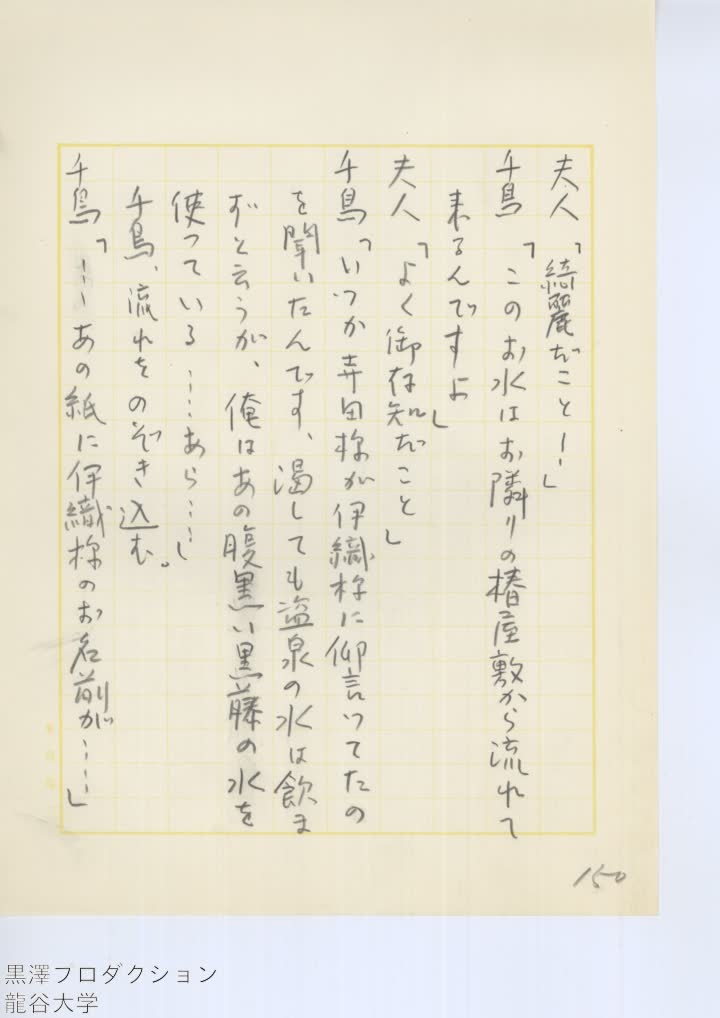 夫人「綺麗だこと……」
千鳥「このお水はお隣りの椿屋敷から流れて
来るんですよ」
夫人「よく御存知だこと」
千鳥「いつか寺田様が伊織様に仰言ってたの
を聞いたんです、渇しても盗泉の水は飲ま
ずと云うが、俺はあの腹黒い黒藤の水を
使っている……あら……」
千鳥、流れをのぞき込む。
千鳥「……あの紙に伊織様のお名前が……」
150
黒澤プロダクション
龍谷大学